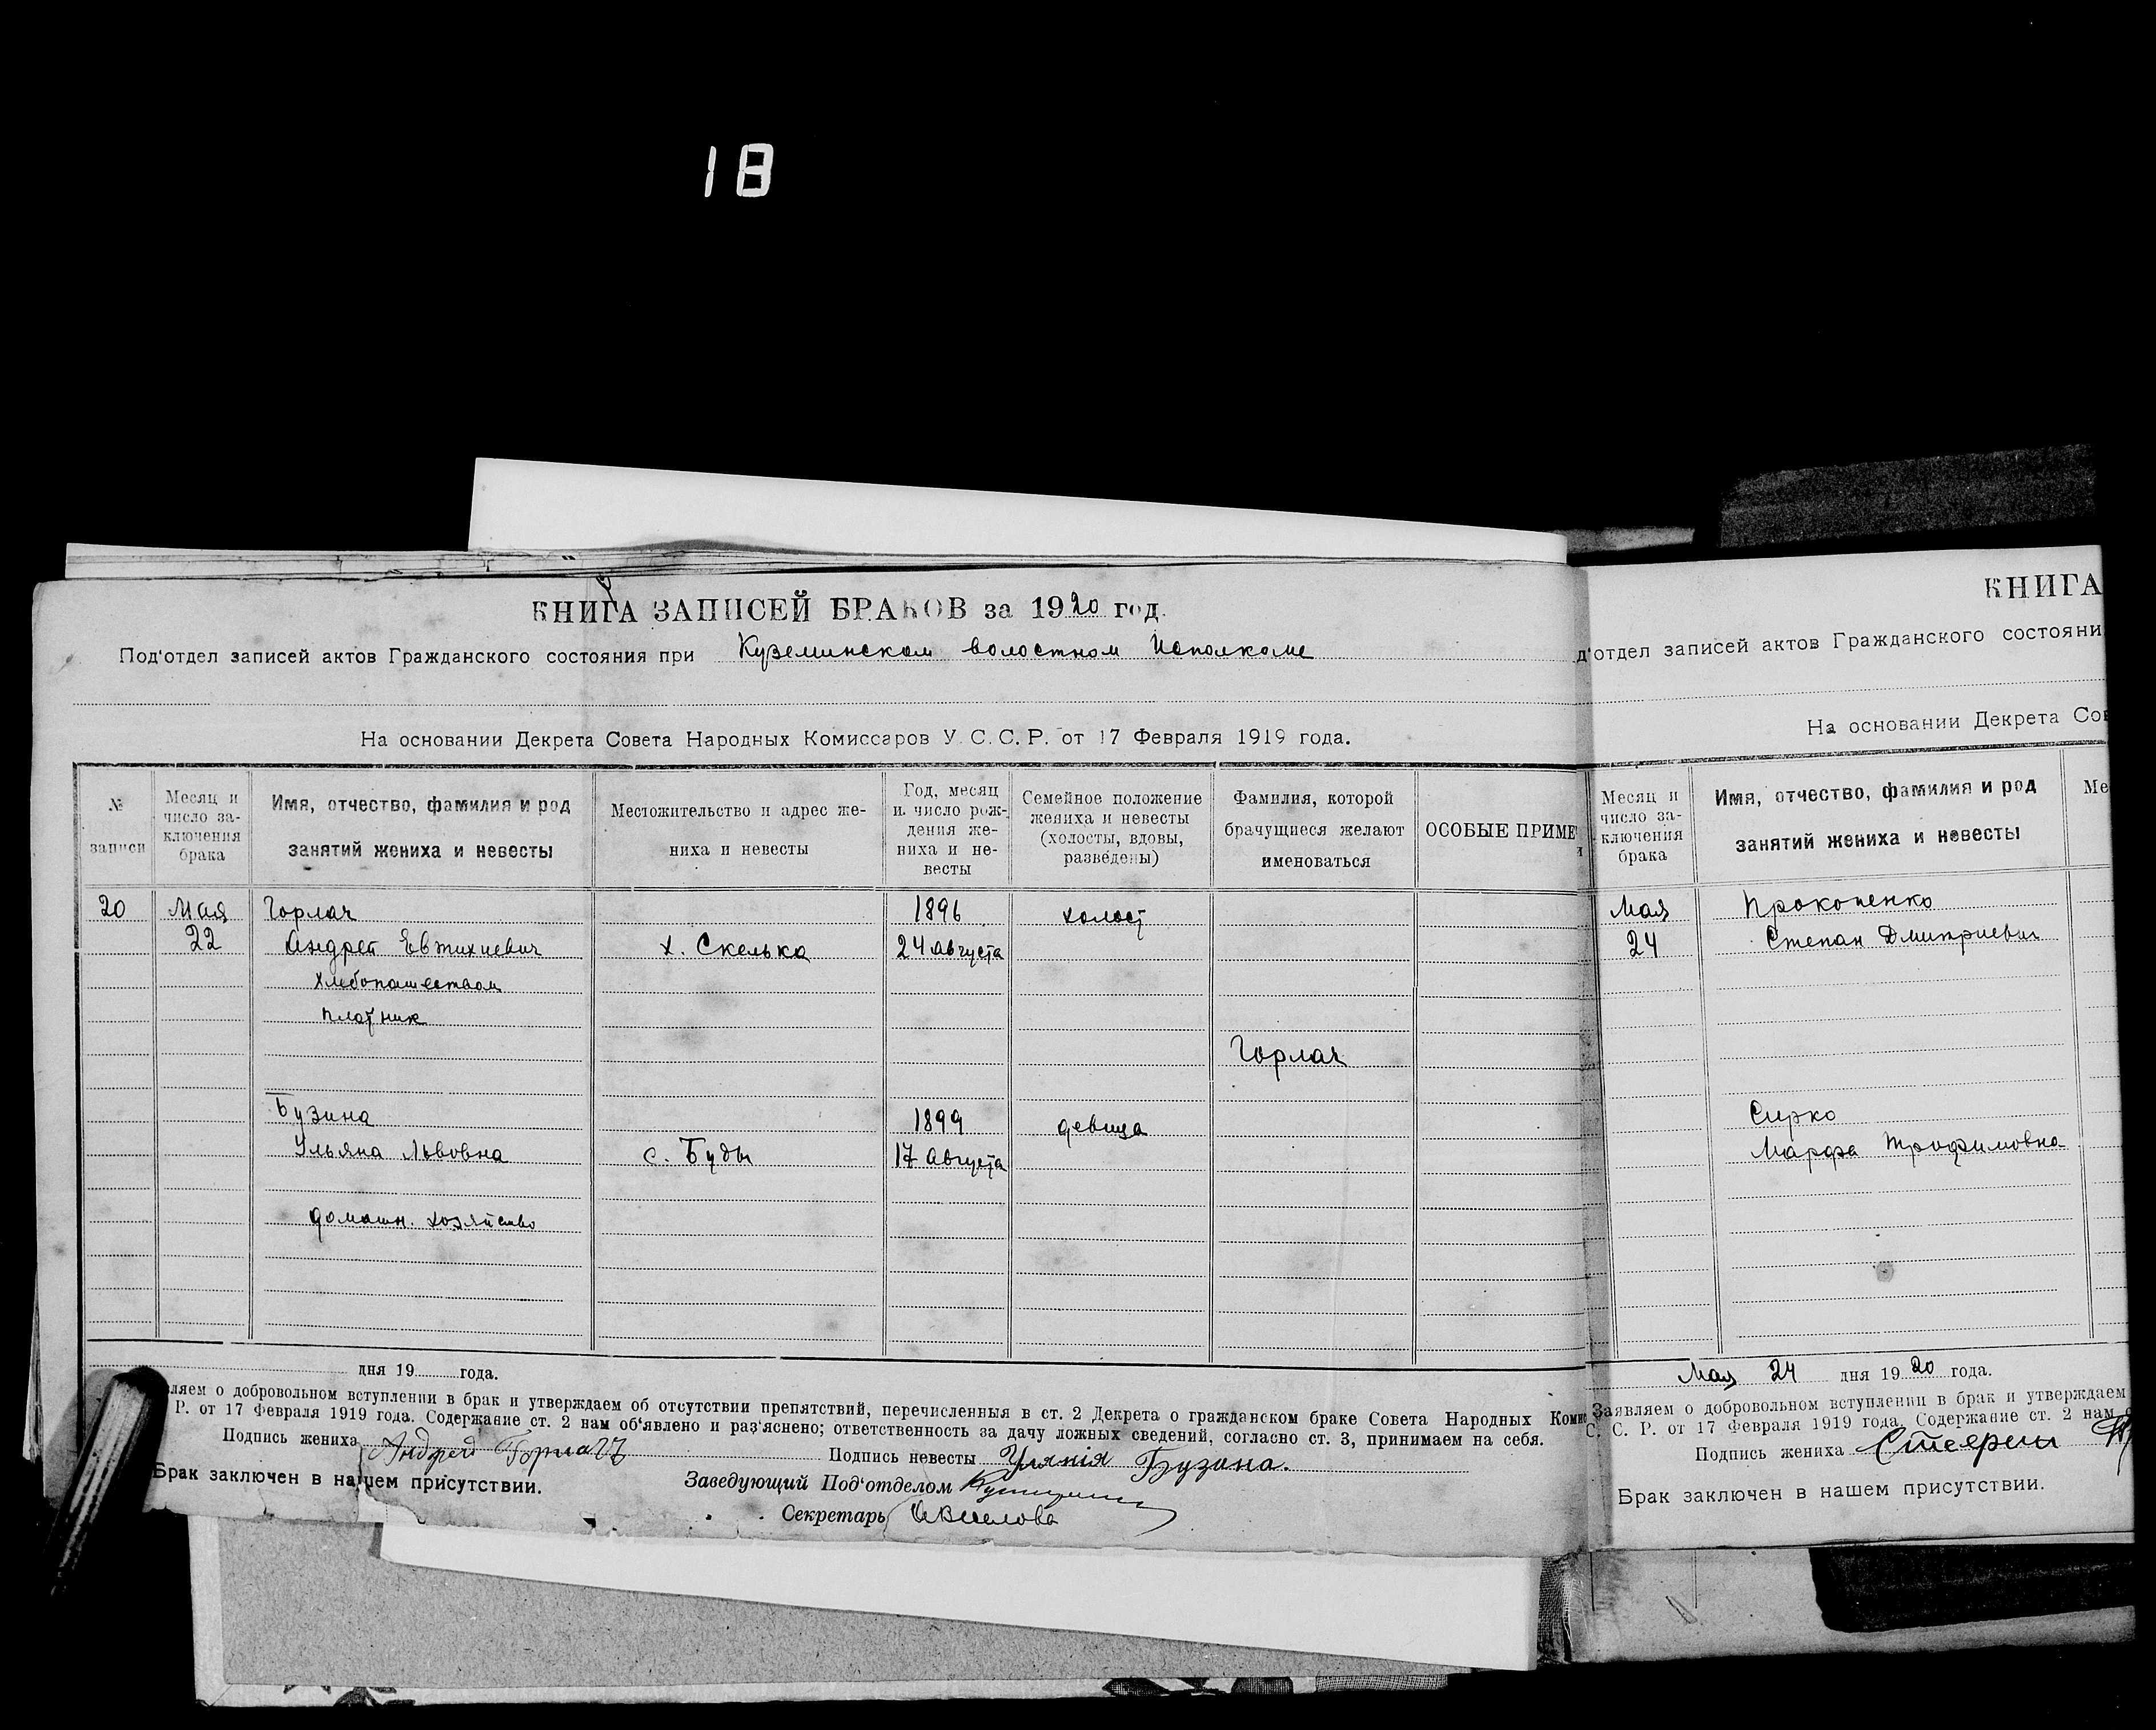 18
КНИГА ЗАПИСЕЙ БРАКОВ за 1920 год.
Под‘отдел записей актов Гражданского состояния при Куземинском волостном Исполкоме
На основании Декрета Совета Народных Комиссаров У. С. С. Р. от 17 Февраля 1919 года.
№ записи
Месяц и число за-
ключения
брака
Имя, отчество, фамилия и род
занятий жениха и невесты
Местожительство и адрес же-
ниха и невесты
Год, месяц
и число рож-
дения же-
ниха и не-
весты
Семейное положение
жениха и невесты
(холосты, вдовы,
разведены)
Фамилия, которой
брачущиеся желают
именоваться
ОСОБЫЕ ПРИМЕ
20 Мая Горлач 1896 холост
22 Андрей Евтихиевич х. Скелька 24 Августа
Хлебопашеством
плотник
Горлач
Бузина 1899 девица
Ульяна Львовна с. Буды 17 Августа
домашн. хозяйство
дня 19 года.
вляем о добровольном вступлении в брак и утверждаем об отсутствии препятствий, перечисленныя в ст. 2 Декрета о гражданском браке Совета Народных Коми
Р. от 17 Февраля 1919 года. Содержание ст. 2 нам об‘явлено и раз‘яснено; ответственность за дачу ложных сведений, согласно ст. 3, принимаем на себя.
Подпись жениха Андрей Горлачъ Подпись невесты Уляния Бузина.
Брак заключен в нашем присутствии. Заведующий Под‘отделом
Секретарь
КНИГА
д‘отдел записей актов Гражданского состояни
На основании Декрета Сов
Месяц и
число за-
ключения
брака
Имя, отчество, фамилия и род
занятий жениха и невесты
Ме
Мая Прокопенко
24 Степан Дмитриевич
Сирко
Марфа Трофимовна
Мая 24 дня 1920 года.
Заявляем о добровольном вступлении в брак и утверждаем
С. С. Р. от 17 Февраля 1919 года. Содержание ст. 2 нам
Подпись жениха
Брак заключен в нашем присутствии.